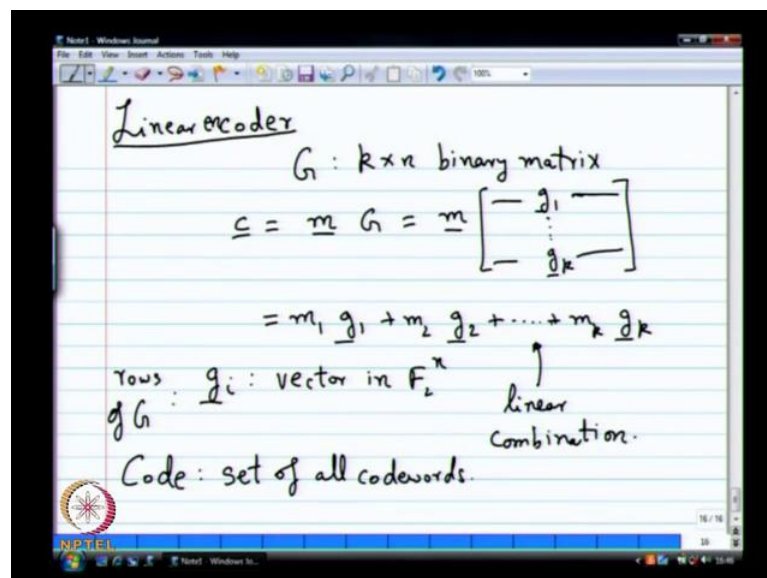 Note1 - Windows Journal
File Edit View Insert Actions Tools Help
100%
Linear encoder
G : k×n binary matrix
c = m G = m [ — g₁ — ⋮ — gₖ — ]
= m₁ g₁ + m₂ g₂ + ..... + mₖ gₖ
rows of G : gᵢ : vector in F₂ⁿ
linear
combination.
Code : set of all codewords.
16 / 16
16
NPTEL
Note1 - Windows Jo...
16:46